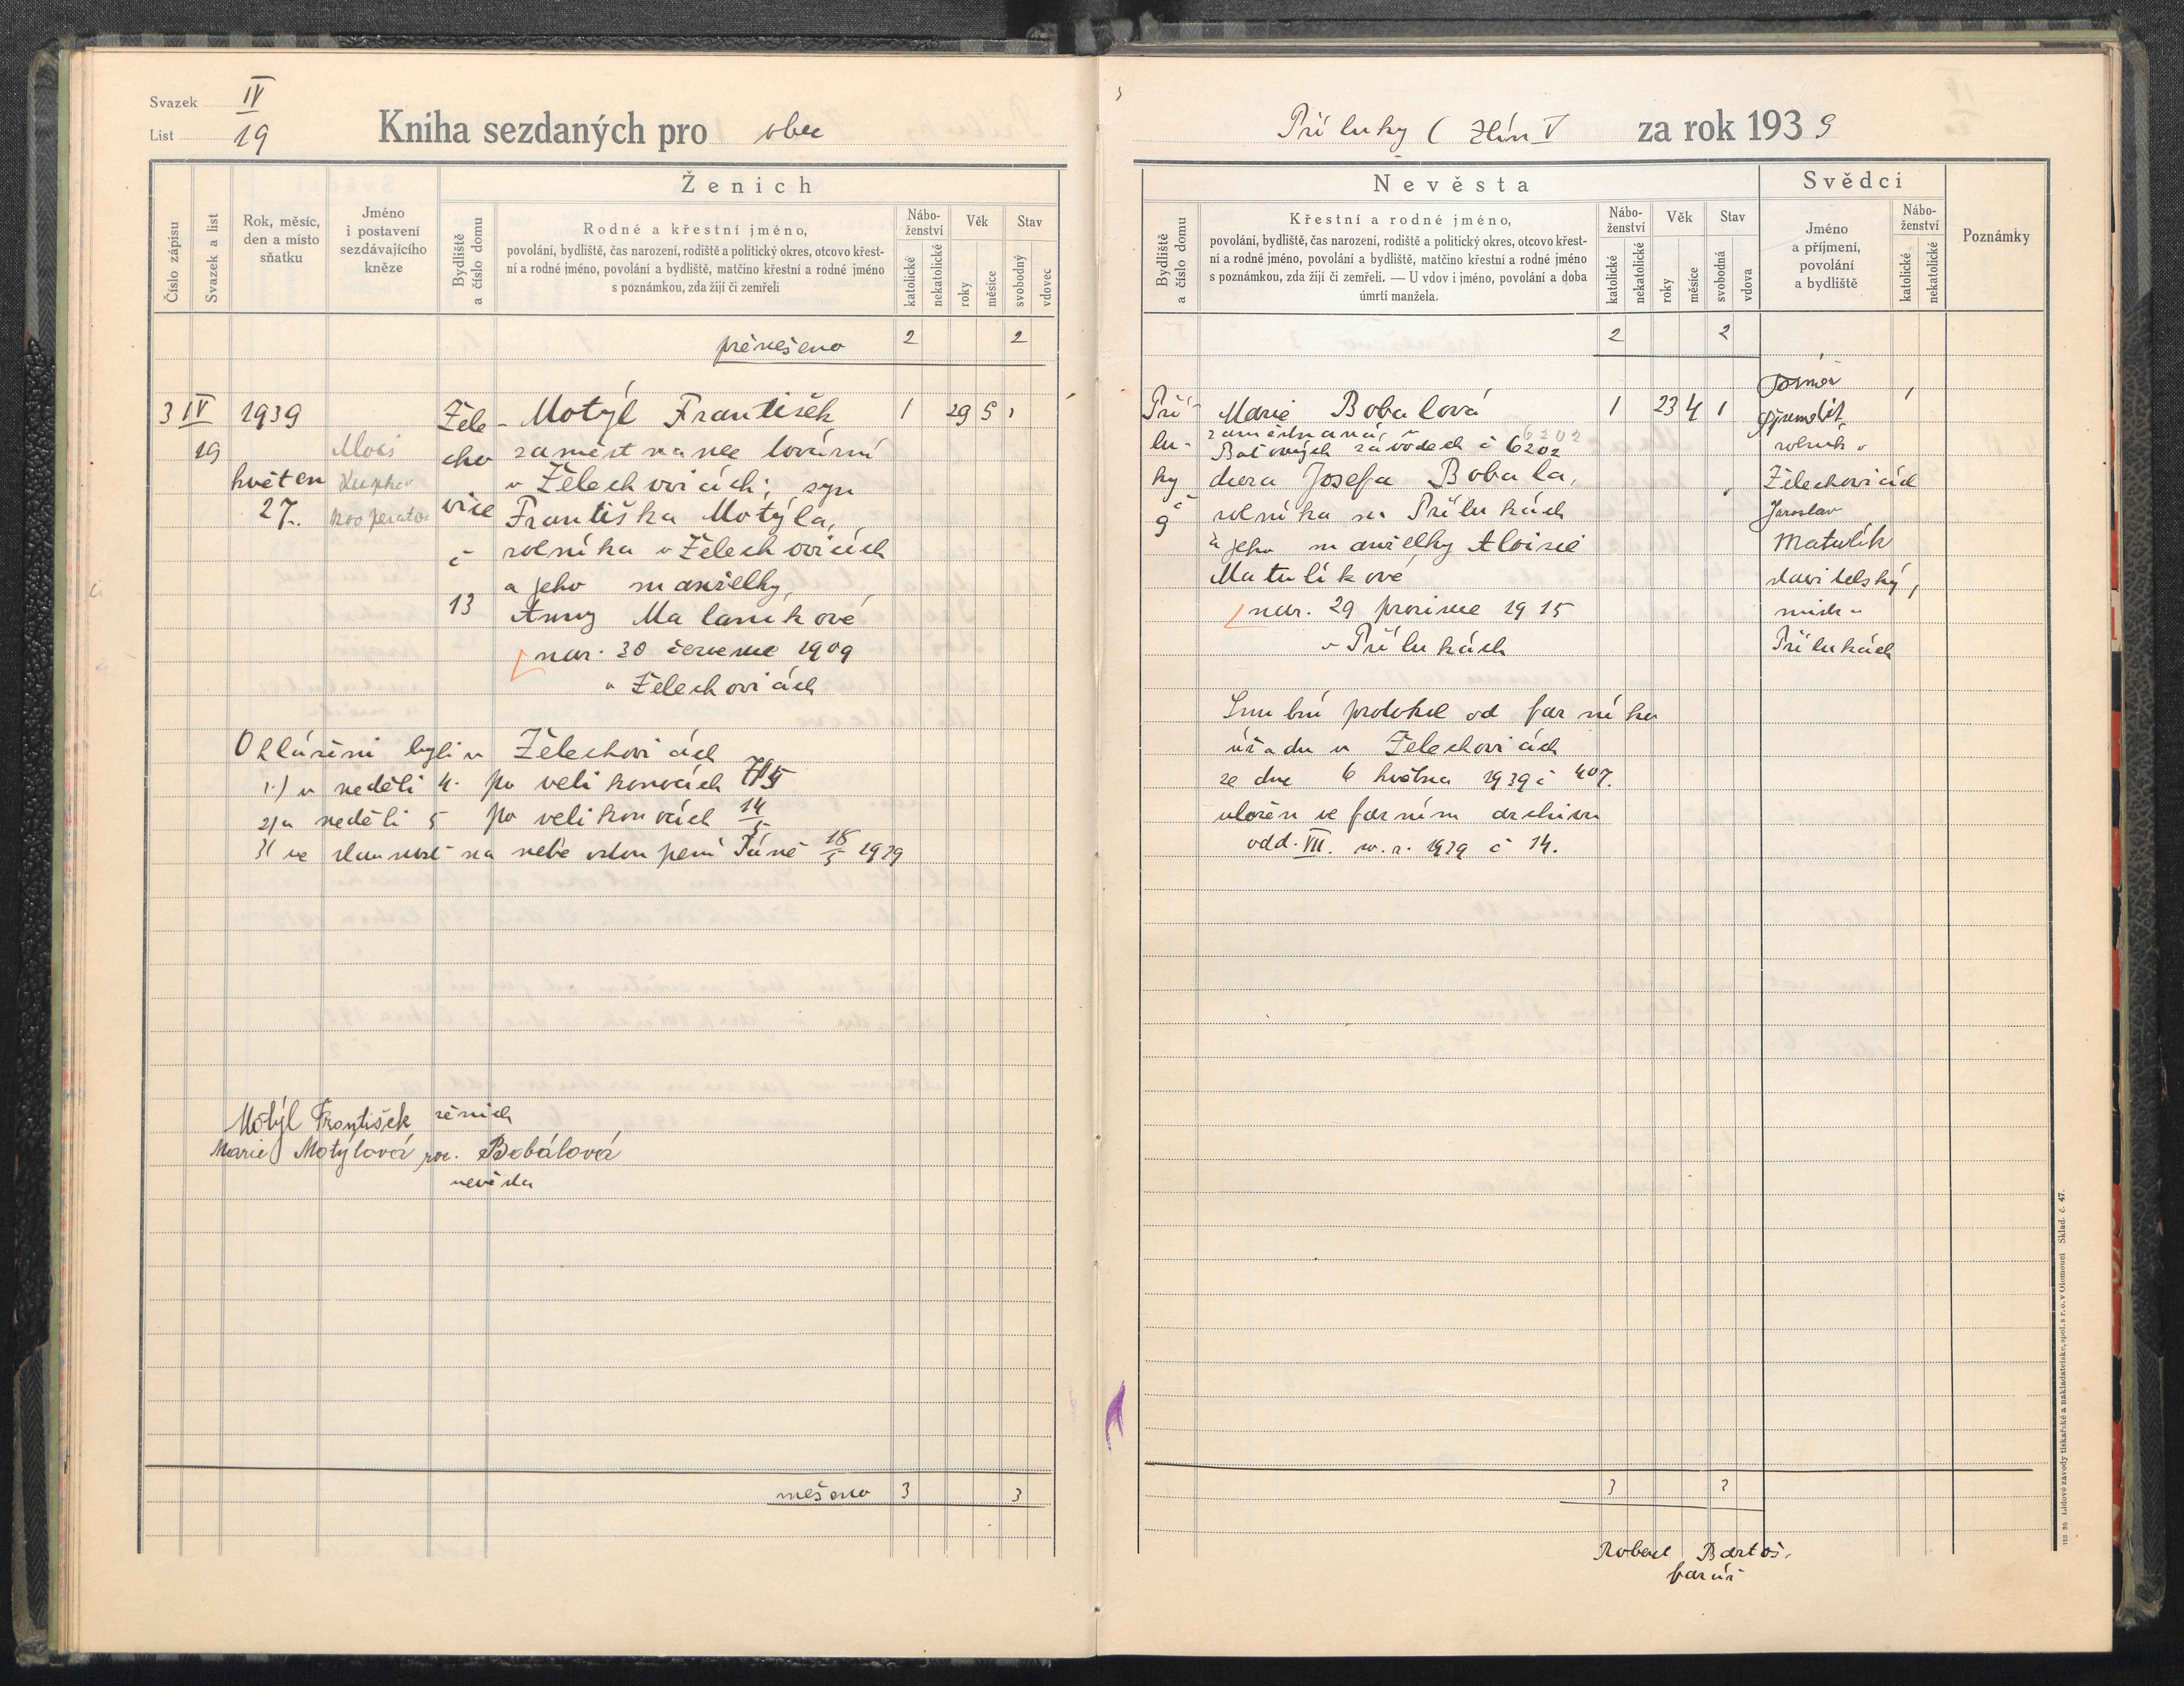 Svazek IV
List 19
Kniha sezdaných pro obec
Číslo zápisu
Svazek a list
Rok, měsíc,
den a místo
sňatku
Jméno
i postavení
sezdávajícího
kněze
Ženich
Bydliště
a číslo domu
Rodné a křestní jméno,
povolání, bydliště, čas narození, rodiště a politický okres, otcovo křest-
ní a rodné jméno, povolání a bydliště, matčino křestní a rodné jméno
s poznámkou, zda žijí či zemřeli
Nábo-
ženství
katolické
nekatolické
Věk
roky
měsíce
Stav
svobodný
vdovec
přenešeno 2 2
3 IV 1939 Žele- Motýl František 1 29 5 1
19 Alois cho zaměstnanec továrny
květen v Želechovicích; syn
27. kooperator vice Františka Motýla,
č rolníka v Želechovicích
a jeho manželky,
13 Anny Malaníkové
nar. 30 července 1909
v Želechovicích
Ohlášeni byli v Želechovicích
1) v neděli 4. po velikonocích 7/5
2) v neděli 5 po velikonocích 14/5
3) ve slavnost na nebe vstoupení Páně 18/5 1939
Motýl František ženich
Marie Motýlová roz. Bobálová
nevěsta
nešeno 3 3
Příluky ( Zlín V za rok 1939
Nevěsta
Bydliště
a číslo domu
Křestní a rodné jméno,
povolání, bydliště, čas narození, rodiště a politický okres, otcovo křest-
ní a rodné jméno, povolání a bydliště, matčino křestní a rodné jméno
s poznámkou, zda žijí či zemřeli. — U vdov i jméno, povolání a doba
úmrtí manžela.
Nábo-
ženství
katolické
nekatolické
Věk
roky
měsíce
Stav
svobodná
vdova
Svědci
Jméno
a příjmení,
povolání
a bydliště
Nábo-
ženství
katolické
nekatolické
Poznámky
2 2
Pří- Marie Bobalová 1 23 4 1
lu- zaměstnaná v 6202
Baťových závodech č 6202
ky dcera Josefa Bobala,
č rolníka na Přílukách
9 a jeho manželky Aloisie
Matulíkové
nar. 29 prosince 1915
v Přílukách
rolník v
Želechovicích
Jaroslav
Matulík
stavitelský
Přílukách
Snubní protokol od farního
úřadu v Želechovicích
ze dne 6 května 1939 č 407.
uložen ve farním archivu
odd. VII. 1939 č 14.
3 3
Robert Bartoš,
farář
110 36 Lidové závody tiskařské a nakladatelské, spol. s r. o. v Olomouci Sklad. č. 47.